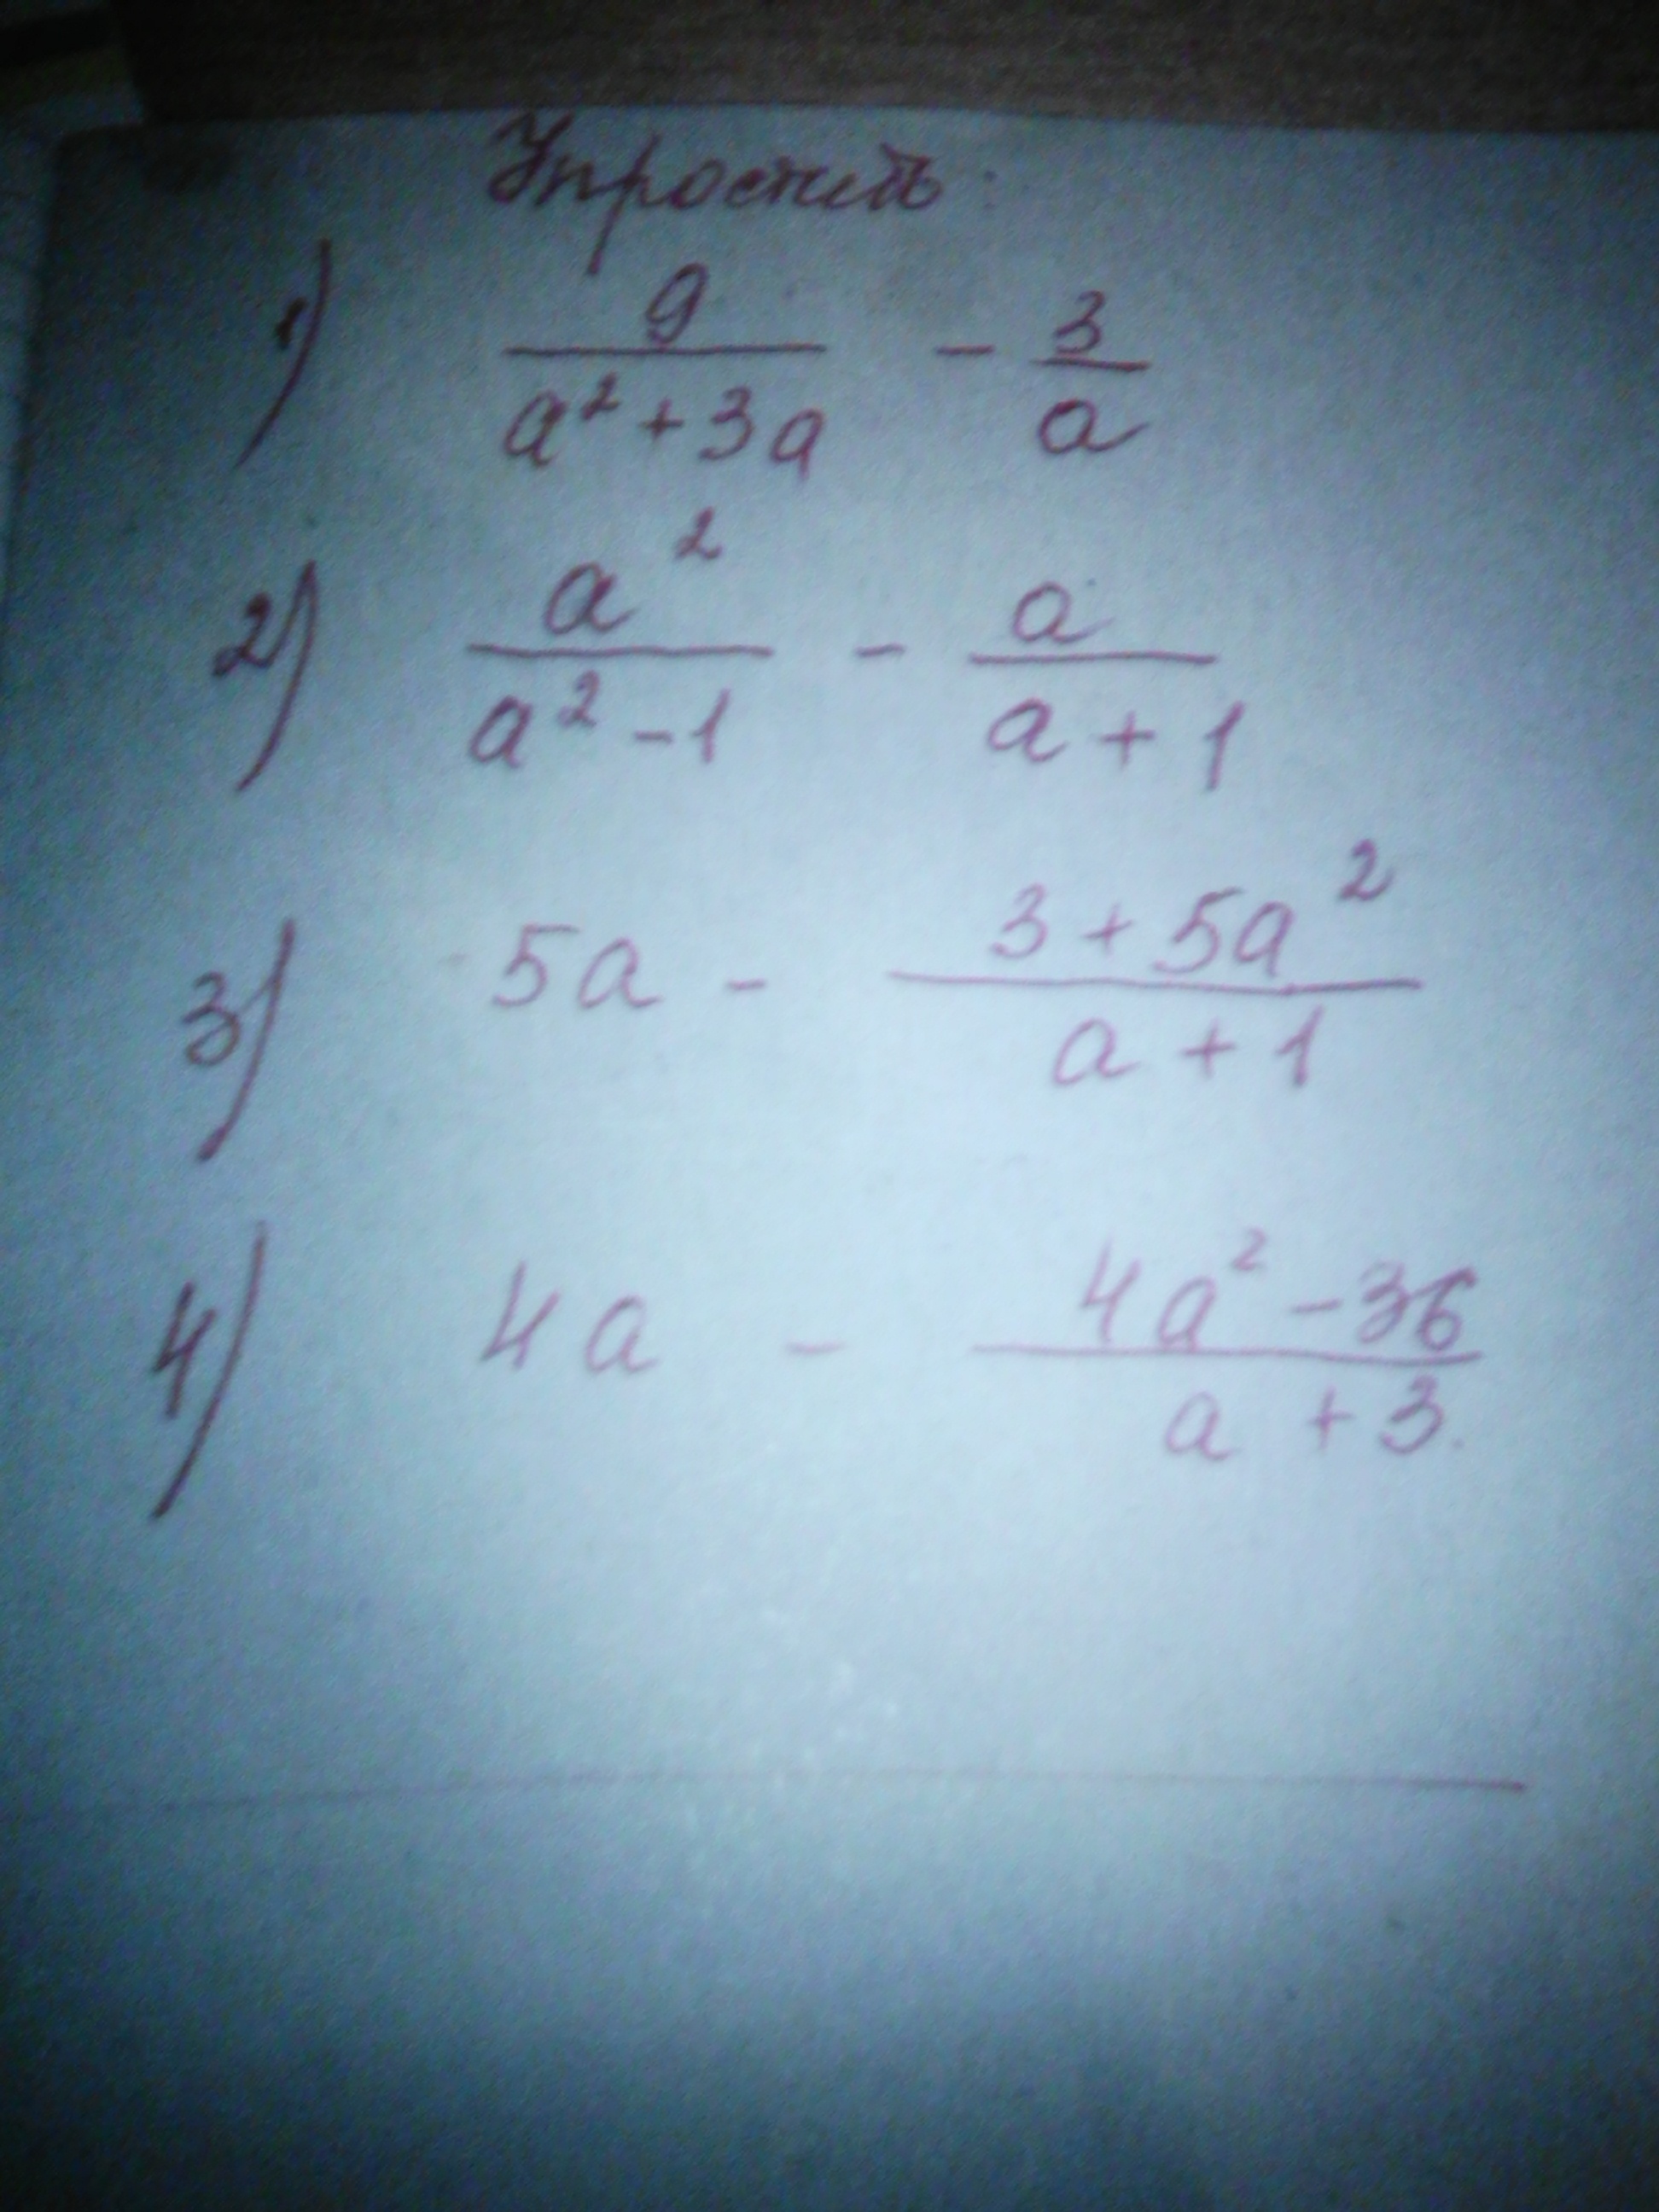 Упростить:
1) 9/(a²+3a) - 3/a
2) a²/(a²-1) - a/(a+1)
3) 5a - (3+5a²)/(a+1)
4) 4a - (4a²-36)/(a+3)